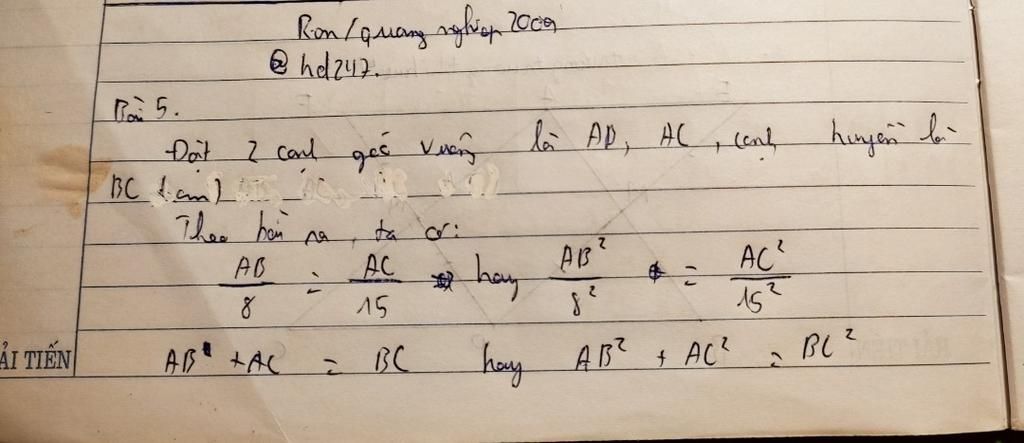 Ron/quangnghiep2009
@ hd247.
Bài 5.
Đặt 2 cạnh góc vuông là AB, AC, cạnh huyền là
BC (cm)
Theo bài ra, ta có:
AB/8 = AC/15 hay AB²/8² = AC²/15²
AB + AC = BC hay AB² + AC² = BC²
ẢI TIẾN